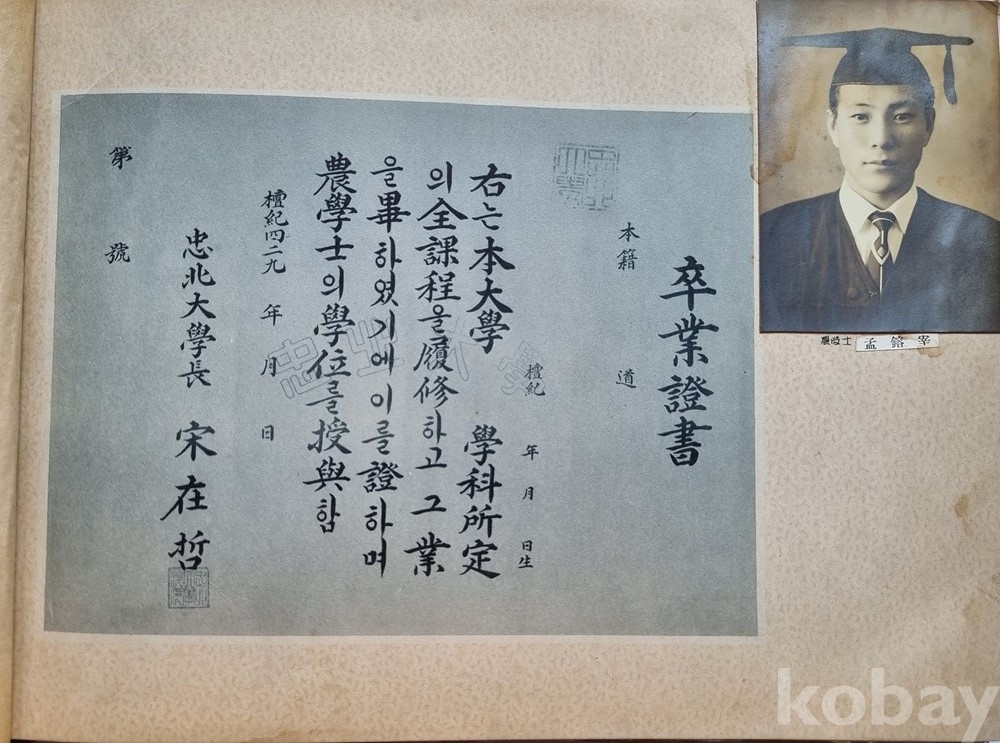 卒業證書
本籍 道
檀紀 年 月 日生
右는本大學 學科所定
의全課程을履修하고그業
을畢하였기에이를證하며
農學士의學位를授與함
檀紀四二九 年 月 日
忠北大學長 宋在哲
第 號
農學士 孟鎔宰
kobay